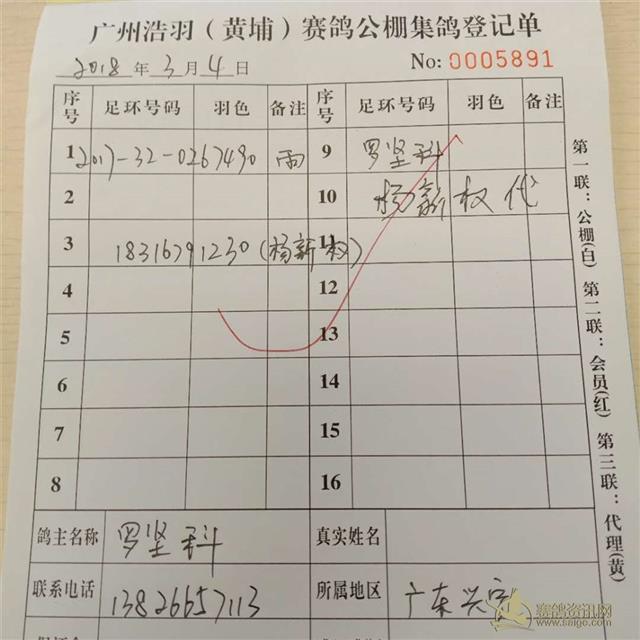 广州浩羽（黄埔）赛鸽公棚集鸽登记单
2018 年 3 月 4 日 No: 0005891
序号 足环号码 羽色 备注 序号 足环号码 羽色 备注
1 2017-32-0267490 雨 9 罗坚科
2 10 杨新权代
3 18316791230(杨新权) 11
4 12
5 13
6 14
7 15
8 16
鸽主名称 罗坚科 真实姓名
联系电话 13826657113 所属地区 广东兴宁
第一联：公棚(白) 第二联：会员(红) 第三联：代理(黄)
赛鸽资讯网
www.saige.com